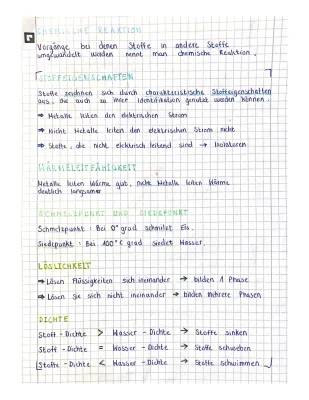 CHEMISCHE REAKTION
Vorgänge bei denen Stoffe in andere Stoffe
umgewandelt werden nennt man chemische Reaktion.
STOFFEIGENSCHAFTEN
Stoffe zeichnen sich durch charakteristische Stoffeigenschaften
aus, die auch zu ihrer Identifikation genutzt werden können.
⇒ Metalle leiten den elektrischen Strom
⇒ Nicht Metalle leiten den elektrischen Strom nicht
⇒ Stoffe, die nicht elektrisch leitend sind → Isolatoren
WÄRMELEITFÄHIGKEIT
Metalle leiten Wärme gut, nicht Metalle leiten Wärme
deutlich langsamer
SCHMELZPUNKT UND SIEDEPUNKT
Schmelzpunkt: Bei 0° grad schmilzt Eis.
Siedepunkt: Bei 100°C grad siedet Wasser.
LÖSLICHKEIT
⇒ Lösen Flüssigkeiten sich ineinander → bilden 1 Phase
⇒ Lösen sie sich nicht ineinander → bilden mehrere Phasen
DICHTE
Stoff-Dichte > Wasser-Dichte → Stoffe sinken
Stoff-Dichte = Wasser-Dichte → Stoffe schweben
Stoffe-Dichte < Wasser-Dichte → Stoffe schwimmen